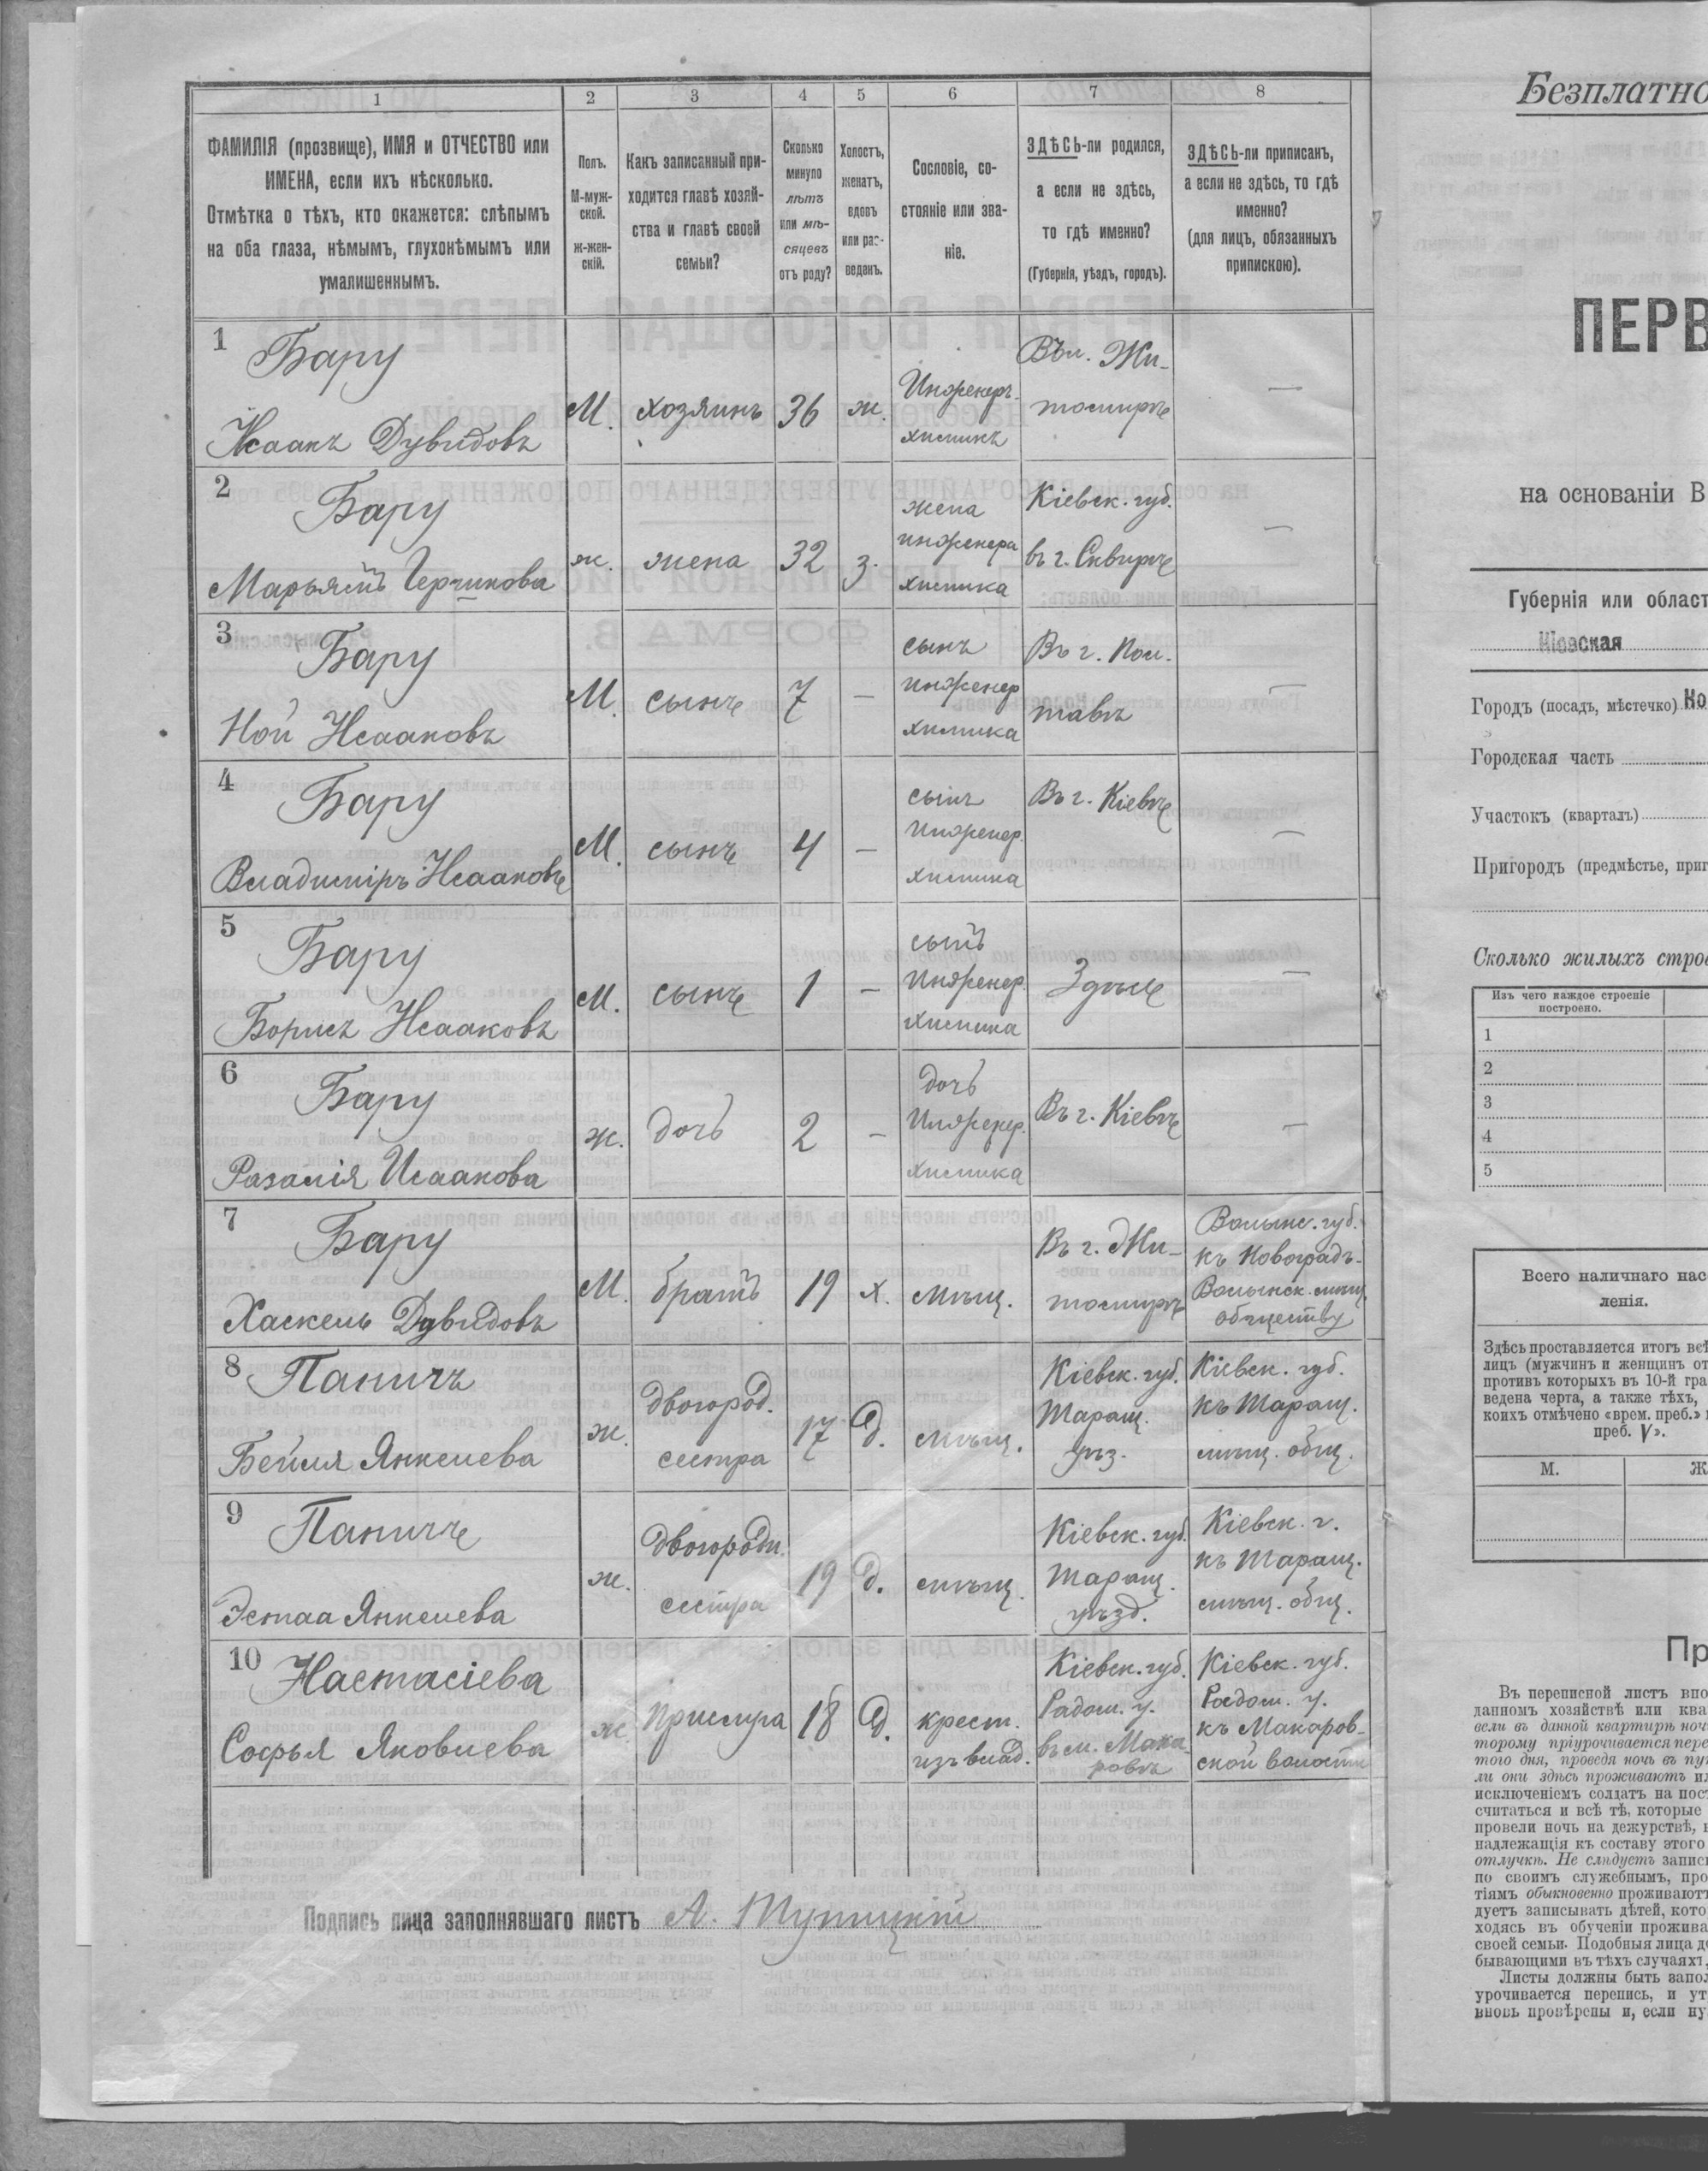 1 2 3 4 5 6 7 8
ФАМИЛІЯ (прозвище), ИМЯ и ОТЧЕСТВО или
ИМЕНА, если ихъ нѣсколько.
Отмѣтка о тѣхъ, кто окажется: слѣпымъ
на оба глаза, нѣмымъ, глухонѣмымъ или
умалишеннымъ.
Полъ.
М-муж-
ской.
ж-жен-
скій.
Какъ записанный при-
ходится главѣ хозяй-
ства и главѣ своей
семьи?
Сколько
минуло
лѣтъ
или мѣ-
сяцевъ
отъ роду?
Холостъ,
женатъ,
вдовъ
или раз-
веденъ.
Сословіе, со-
стояніе или зва-
ніе.
ЗДѢСЬ-ли родился,
а если не здѣсь,
то гдѣ именно?
(Губернія, уѣздъ, городъ).
ЗДѢСЬ-ли приписанъ,
а если не здѣсь, то гдѣ
именно?
(для лицъ, обязанныхъ
припискою).
1
Бару
Исаакъ Дувидовъ
М.
хозяинъ
36
ж.
Инженеръ-
химикъ
Жи-
томирѣ
—
2
Бару
Марьямъ
ж.
жена
32
з.
жена
инженера
химика
Кіевск. губ.
въ г. Сквирѣ
—
3
Бару
Ной Исааковъ
М.
сынъ
7
—
сынъ
инженер
химика
Въ г. Пол-
тавѣ
—
4
Бару
Владиміръ Исааковъ
М.
сынъ
4
—
сынъ
Инженер.
химика
Въ г. Кіевѣ
—
5
Бару
Борисъ Исааковъ
М.
сынъ
1
—
сынъ
Инженер.
химика
Здѣсь
—
6
Бару
Разалія Исаакова
ж.
дочь
2
—
дочь
Инженер.
химика
Въ г. Кіевѣ
—
7
Бару
Хаскель Дувидовъ
М.
братъ
19
х.
мѣщ.
Въ г. Жи-
томирѣ
Волынс. губ.
къ Новоградъ-
Волынск. мѣщ
обществу
8
Паничъ
Бейля Янкелева
ж.
двоюрод.
сестра
17
д.
мѣщ.
Кіевск. губ.
Таращ.
уѣз.
Кіевск. губ.
къ Таращ.
мѣщ. общ.
9
Паничъ
Янкелева
ж.
сестра
19
д.
мѣщ.
Кіевск. губ.
Таращ.
уѣзд.
Кіевск. г.
къ Таращ.
мѣщ. общ.
10
Настасіева
Софья Яковлева
ж
прислуга
18
д.
крест.
изъ влад.
Кіевск. губ.
Радом. у.
въ м. Мака-
ровѣ
Кіевск. губ.
Радом. у.
къ Макаров-
ской волости
Подпись лица заполнявшаго листъ А.
Безплатно
ПЕРВ
на основаніи В
Губернія или област
Кіевская
Городъ (посадъ, мѣстечко) Ко
Городская часть
Участокъ (кварталъ)
Пригородъ (предмѣстье, приг
Сколько жилыхъ строе
Изъ чего каждое строеніе
построено.
1
2
3
4
5
Всего наличнаго насе
ленія.
Здѣсь проставляется итогъ всѣ
лицъ (мужчинъ и женщинъ от
противъ которыхъ въ 10-й гра
ведена черта, а также тѣхъ,
коихъ отмѣчено «врем. преб.»
преб. V».
М. Ж
Пр
Въ переписной листъ впо
данномъ хозяйствѣ или ква
вели въ данной квартирѣ ноч
торому пріурочивается пере
того дня, проведя ночь въ пу
ли они здѣсь проживаютъ ил
исключеніемъ солдатъ на пост
считаться и всѣ тѣ, которые
провели ночь на дежурствѣ, в
надлежащія къ составу этого
отлучкѣ. Не слѣдуетъ записы
по своимъ служебнымъ, про
тіямъ обыкновенно проживают
дуетъ записывать дѣтей, кото
ходясь въ обученіи прожива
своей семьи. Подобныя лица д
бывающими въ тѣхъ случаяхъ,
Листы должны быть запол
урочивается перепись, и ут
вновь провѣрены и, если ну